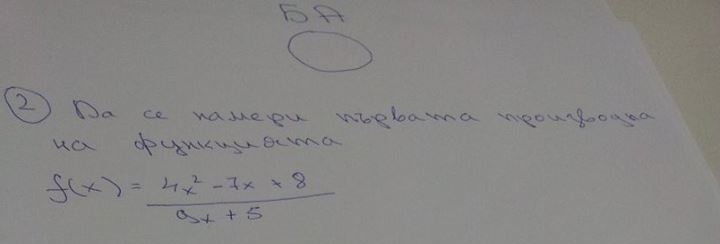 БА
② Да се намери първата производна
на функцията
f(x) = 4x² - 7x + 8
9x + 5